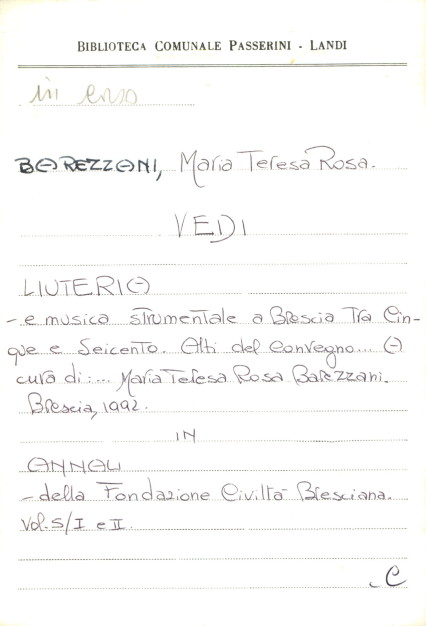 BIBLIOTECA COMUNALE PASSERINI - LANDI
in corso
BAREZZANI, Maria Teresa Rosa.
VEDI
LIUTERIA
- e musica strumentale a Brescia tra Cin-
que e Seicento. Atti del convegno... A
cura di:... Maria Teresa Rosa Barezzani.
Brescia, 1992.
IN
ANNALI
- della Fondazione Civiltà Bresciana.
Vol. 5/I e II.
C